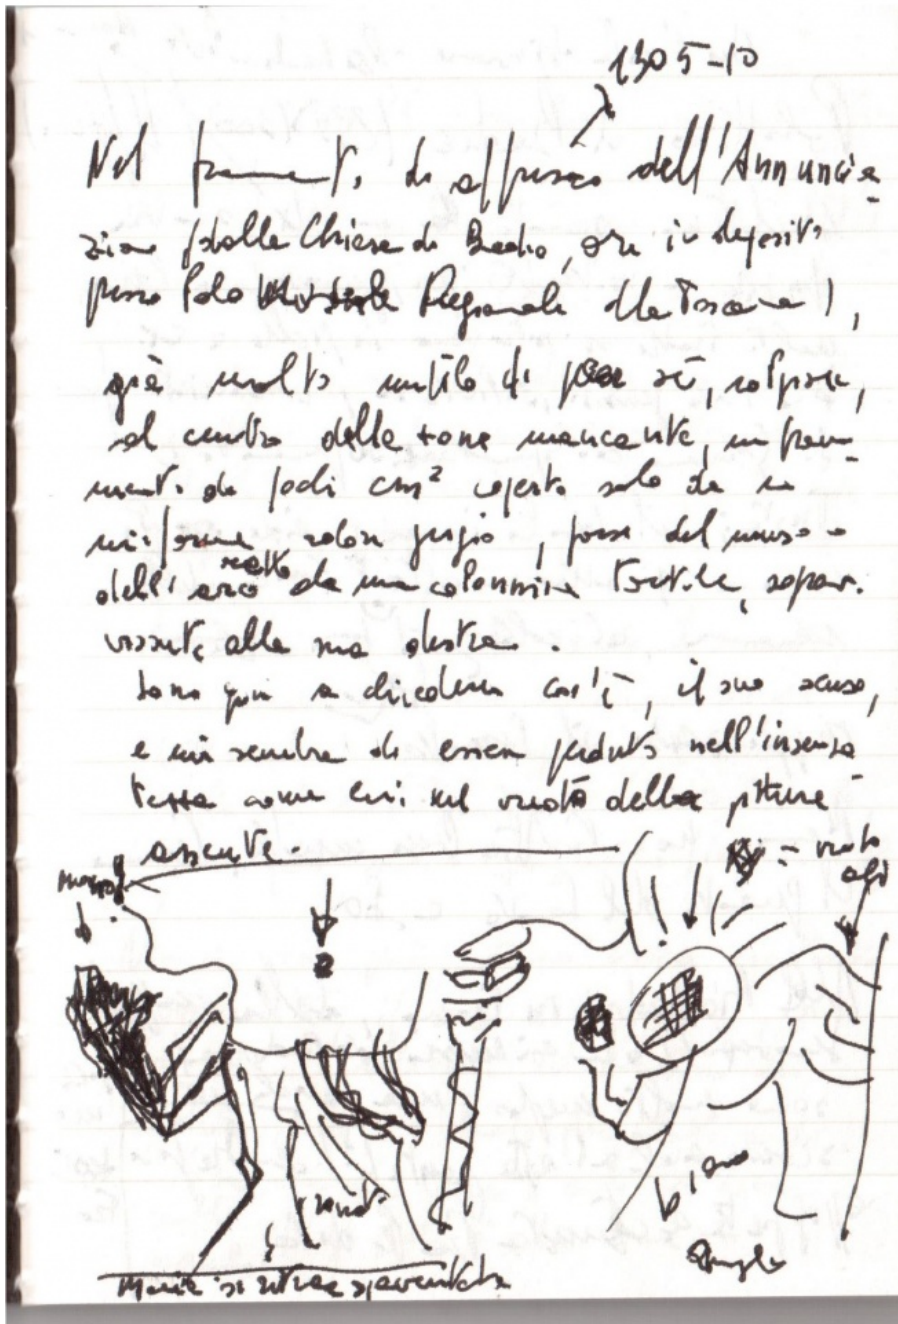 1305-10
Nel frammento di affresco dell'Annuncia-
zione (dalla Chiesa di Badia, ora in deposito
presso Polo Museale Regionale della Toscana),
già molto mutilo di per sé, colpisce,
al centro della zona mancante, un fram-
mento di pochi cm² coperto solo da un
uniforme colore grigio, forse del muro o
dell'arco retto da una colonnina tortile, soprav-
vissuta alla sua destra.
Sono qui a chiedermi cos'è, il suo senso,
e mi sembra di essere perduto nell'insensa-
tezza come lui nel vuoto della pittura
assente
= vuoto
?
vuoto
bianco
Angelo
Maria si ritrae spaventata